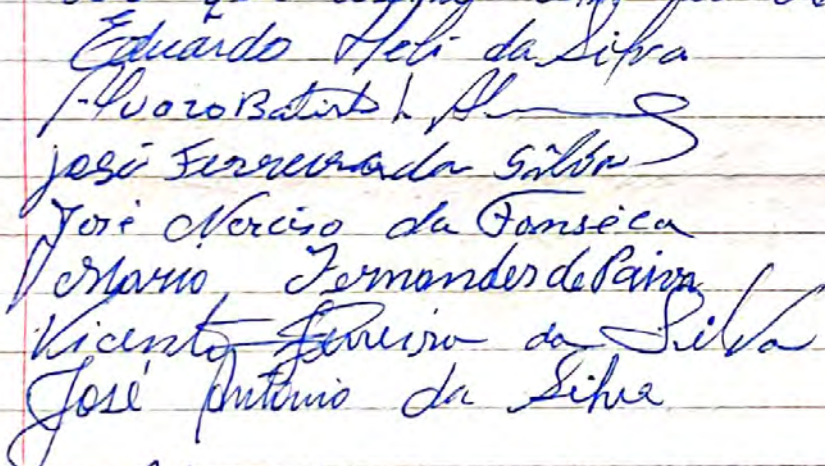 Eduardo Heli da Silva
Alvaro Batista
José Ferreira da Silva
José Narciso da Fonseca
Mario Fernandes de Paiva
Vicente Ferreira da Silva
José Antônio da Silva